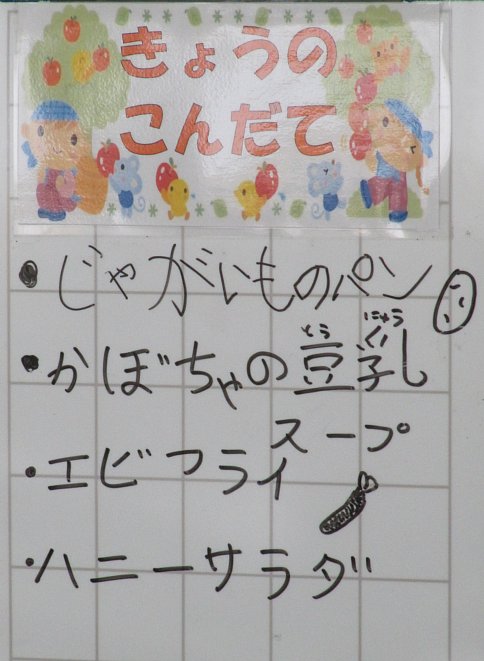 きょうの
こんだて
・じゃがいものパン
とう にゅう
・かぼちゃの豆乳
スープ
・エビフライ
・ハニーサラダ